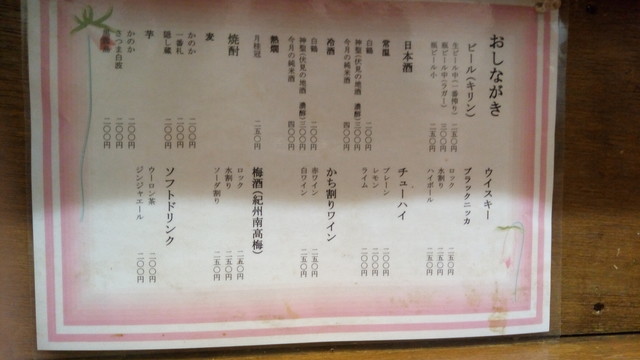 おしながき
ビール（キリン）
生ビール中（一番搾り） 二五〇円
瓶ビール中（ラガー） 三〇〇円
瓶ビール小 二五〇円
日本酒
常温
白鶴 二〇〇円
神聖（伏見の地酒 濃醇） 三〇〇円
今月の純米酒 四〇〇円
冷酒
白鶴 二〇〇円
神聖（伏見の地酒 濃醇） 三〇〇円
今月の純米酒 四〇〇円
熱燗
月桂冠 二五〇円
焼酎
麦
かのか 二〇〇円
一番札 二〇〇円
隠し蔵 二〇〇円
芋
かのか 二〇〇円
さつま白波 二〇〇円
二〇〇円
ウイスキー
ブラックニッカ
ロック 二五〇円
水割り 二五〇円
ハイボール 二五〇円
チューハイ
プレーン 二〇〇円
レモン 二〇〇円
ライム 二〇〇円
かち割りワイン
赤ワイン 二五〇円
白ワイン 二五〇円
梅酒（紀州南高梅）
ロック 二五〇円
水割り 二五〇円
ソーダ割り 二五〇円
ソフトドリンク
ウーロン茶 二〇〇円
ジンジャエール 二〇〇円